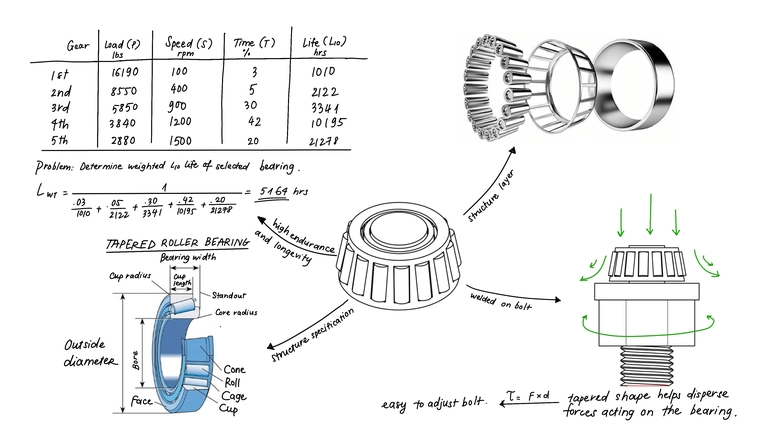 Gear Load (P) lbs Speed (S) rpm Time (T) % Life (L10) hrs
1st 16190 100 3 1010
2nd 8550 400 5 2122
3rd 5850 900 30 3341
4th 3840 1200 42 10195
5th 2880 1500 20 21278
Problem: Determine weighted L10 life of selected bearing.
LWT = 1 / (.03/1010 + .05/2122 + .30/3341 + .42/10195 + .20/21278) = 5164 hrs
structure layer
high endurance
and longevity
TAPERED ROLLER BEARING
Bearing width
Cup radius
Cup
length
Standout
Core radius
Outside
diameter
Bore
Cone
Roll
Cage
Cup
Face
structure specification
welded on bolt
easy to adjust bolt. τ = F×d tapered shape helps disperse
forces acting on the bearing.